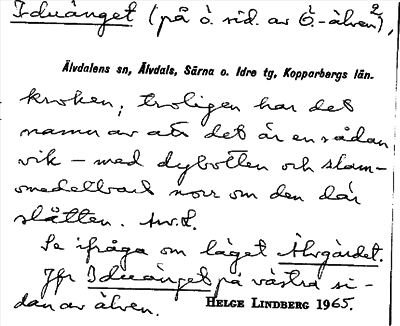 Iduånget (på ö. sid. av Ö.-älven²),
Älvdalens sn, Älvdals, Särna o. Idre tg, Kopparbergs län.
kroken; troligen har det
namn av att det är en sådan
vik – med dybotten och slam-
omedelbart norr om den där
slåtten.
Se ifråga om läget Älvgärdet.
Jfr Iduånget på västra si-
dan av älven.
HELGE LINDBERG 1965.